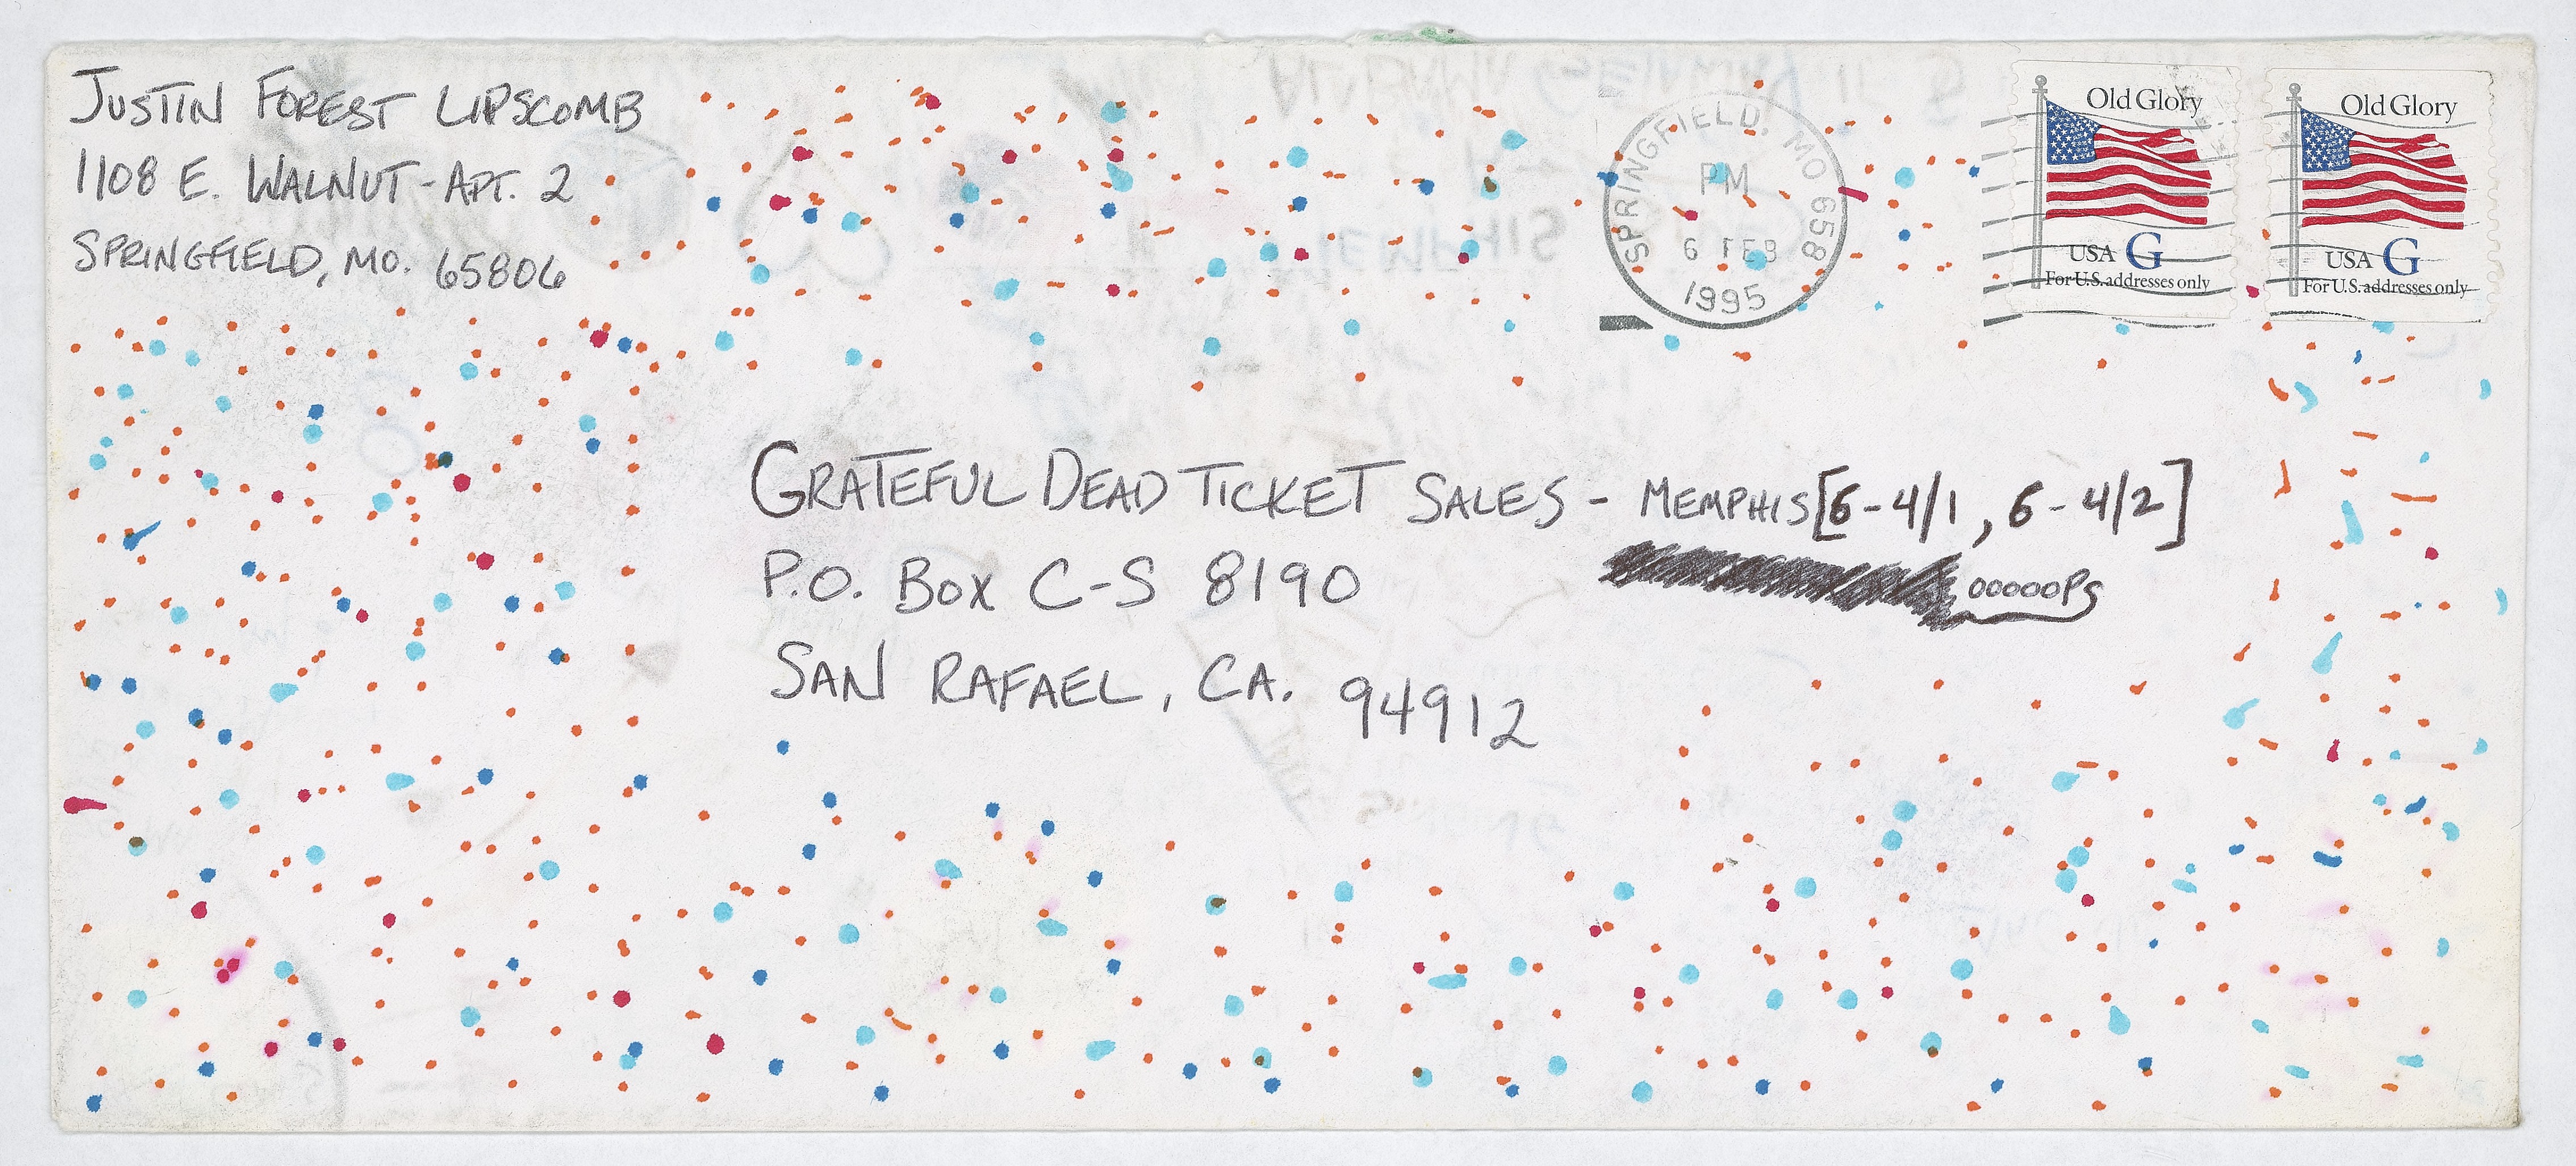 JUSTIN FOREST LIPSCOMB
1108 E. WALNUT - APT. 2
SPRINGFIELD, MO. 65806
SPRINGFIELD, MO 658
PM
6 FEB
1995
Old Glory
USA G
For U.S. addresses only
Old Glory
USA G
For U.S. addresses only
GRATEFUL DEAD TICKET SALES - MEMPHIS [6-4/1, 6-4/2]
P.O. BOX C-S 8190
oooooPs
SAN RAFAEL, CA. 94912